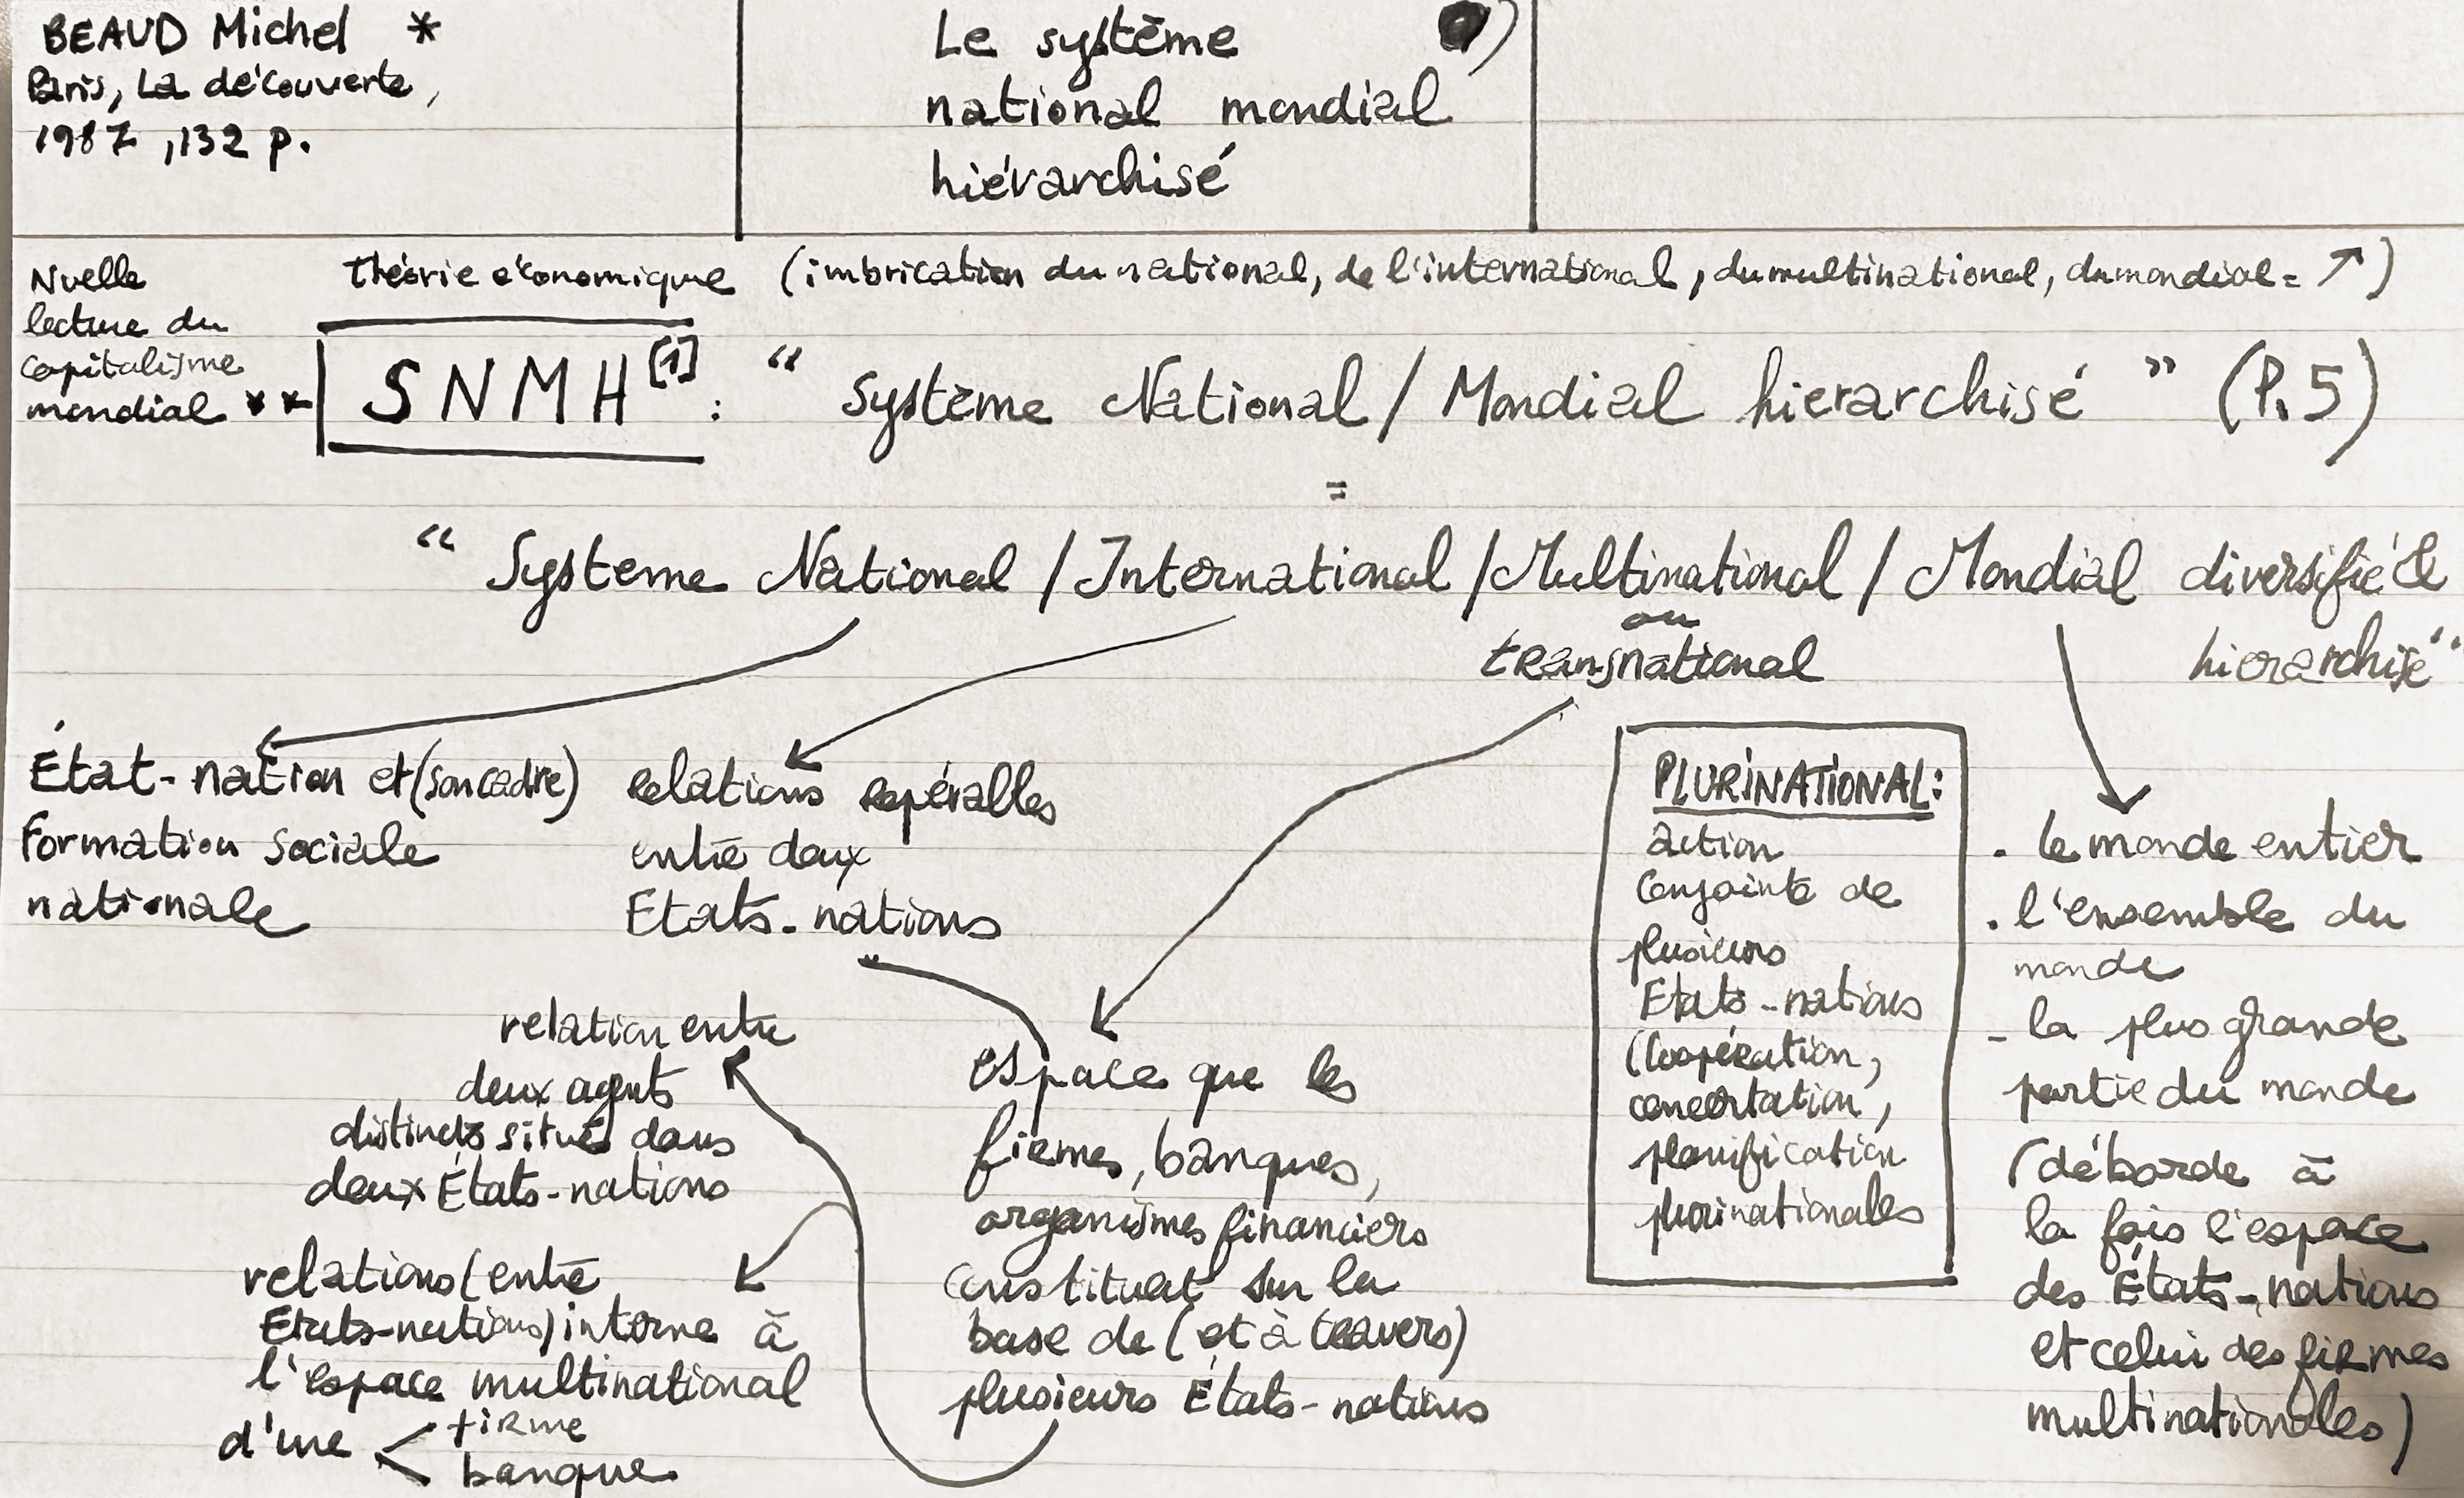 BEAUD Michel *
Paris, La découverte,
1987, 132 p.
Le système
national mondial
hiérarchisé
Nuelle
lecture du
capitalisme
mondial **
théorie économique (imbrication du national, de l'international, du multinational, du mondial = ↗)
SNMH [1] : “ Système National / Mondial hierarchisé ” (P. 5)
=
“ Systeme National / International / Multinational / Mondial diversifié &
hierarchisé “
ou
transnational
État-nation et (son cadre)
Formation sociale
nationale
relations repérables
entre deux
Etats-nations
relation entre
deux agents
distincts situés dans
deux États-nations
relations (entre
Etats-nations) interne à
l'espace multinational
d'une < firme
banque
espace que les
firmes, banques,
organismes financiers
constituent sur la
base de (et à travers)
plusieurs États-nations
PLURINATIONAL :
action
conjointe de
plusieurs
Etats-nations
(coopération,
concertation,
planification
plurinationales
. le monde entier
. l'ensemble du
monde
- la plus grande
partie du monde
(déborde à
la fois l'espace
des États-nations
et celui des firmes
multinationales)